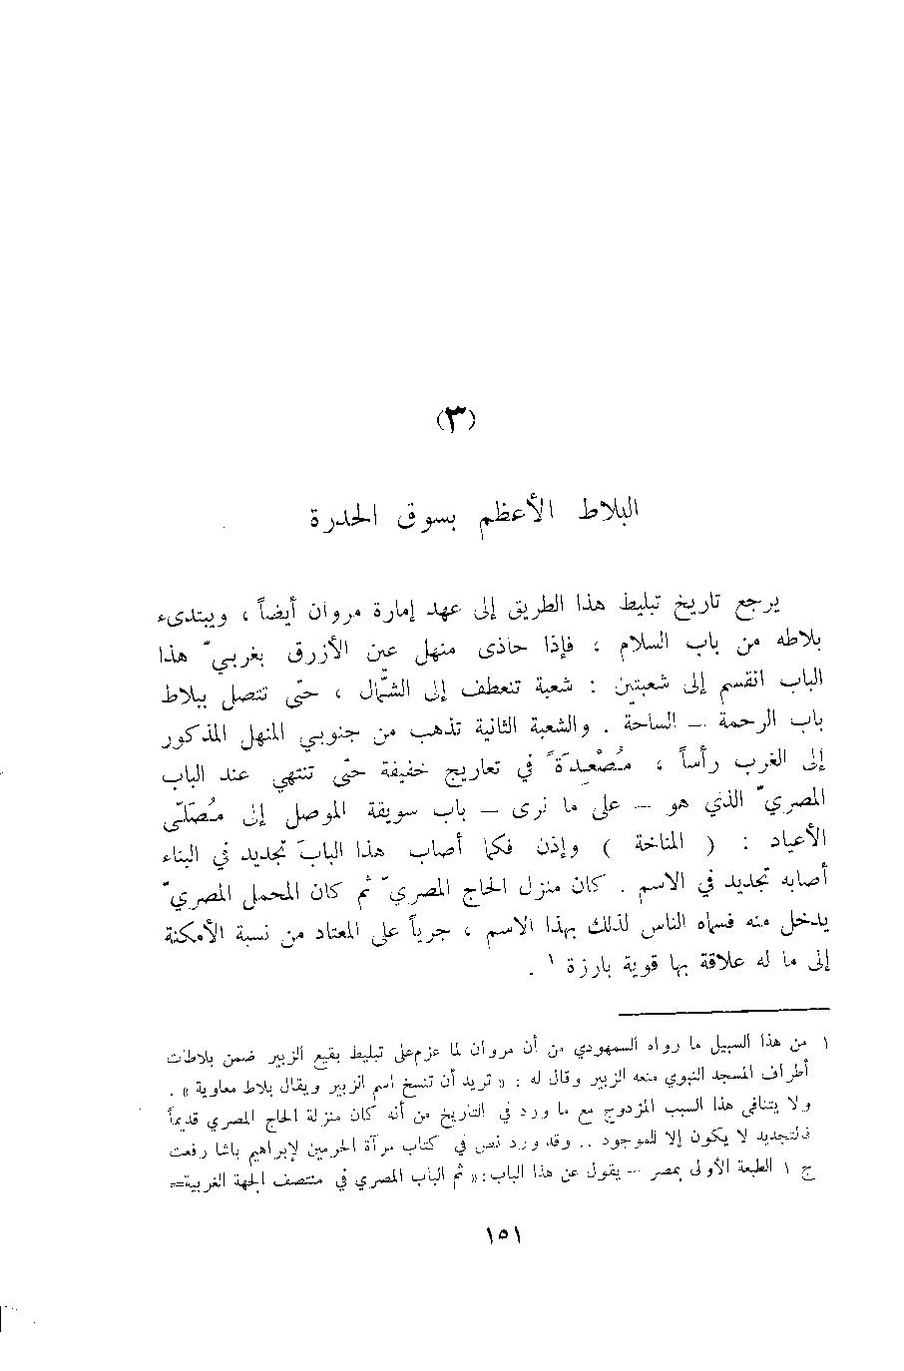 (٣)
البلاط الأعظم بسوق الحدرة
يرجع تاريخ تبليط هذا الطريق إلى عهد إمارة مروان أيضاً ، ويبتدىء
بلاطه من باب السلام ، فإذا حاذى منهل عين الأزرق بغربيّ هذا
الباب انقسم إلى شعبتين : شعبة تنعطف إلى الشّمال ، حتّى تتصل ببلاط
باب الرحمة – الساحة . والشعبة الثانية تذهب من جنوبي المنهل المذكور
إلى الغرب رأساً ، مُصْعِدَةً في تعاريج خفيفة حتّى تنتهي عند الباب
المصريّ الذي هو – على ما نرى – باب سويقة الموصل إلى مُصَلّى
الأعياد : ( المناخة ) وإذن فكما أصاب هذا البابَ تجديد في البناء
أصابه تجديد في الاسم . كان منزل الحاج المصريّ ثم كان المحمل المصريّ
يدخل منه فسماه الناس لذلك بهذا الاسم ، جرياً على المعتاد من نسبة الأمكنة
إلى ما له علاقة بها قوية بارزة ١ .
١ من هذا السبيل ما رواه السمهودي من أن مروان لما عزم على تبليط بقيع الزبير ضمن بلاطات
أطراف المسجد النبوي منعه الزبير وقال له : « تريد أن تنسخ اسم الزبير ويقال بلاط معاوية » .
ولا يتنافى هذا السبب المزدوج مع ما ورد في التاريخ من أنه كان منزلة الحاج المصري قديماً
فالتجديد لا يكون إلا للموجود .. وقد ورد نص في كتاب مرآة الحرمين لإبراهيم باشا رفعت
ج ١ الطبعة الأولى بمصر – يقول عن هذا الباب : « ثم الباب المصري في منتصف الجهة الغربية=
١٥١